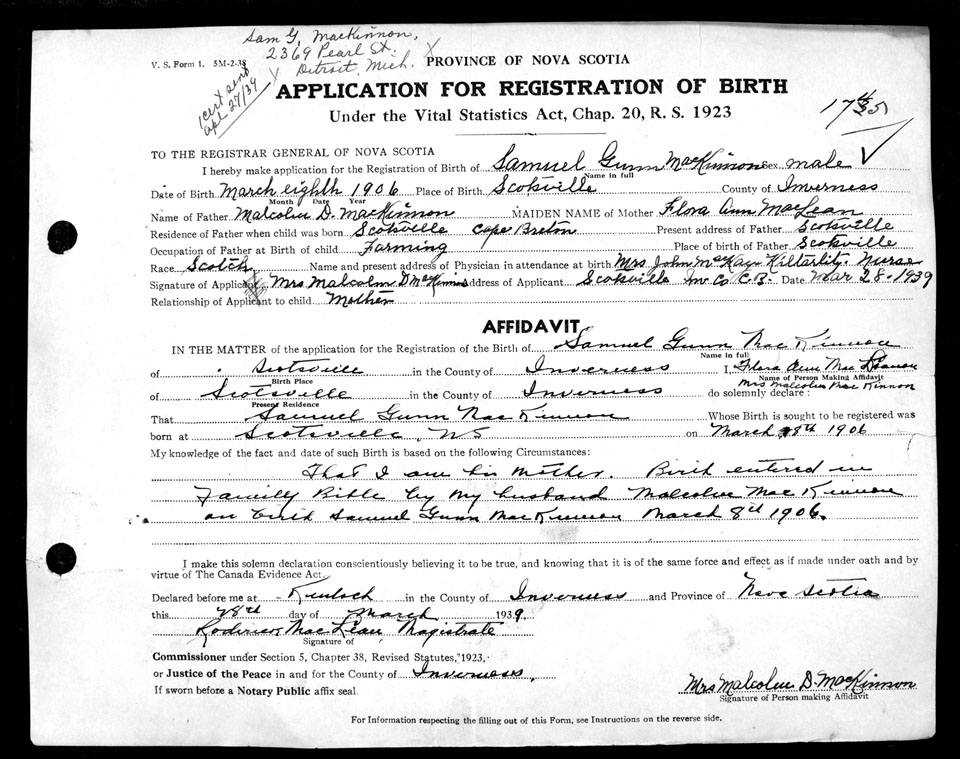 Sam G. MacKinnon,
2369 Pearl St.
Detroit, Mich.
V. S. Form 1. 5M-2-38
1 cert sent
apl 27/39
PROVINCE OF NOVA SCOTIA
APPLICATION FOR REGISTRATION OF BIRTH
Under the Vital Statistics Act, Chap. 20, R. S. 1923
TO THE REGISTRAR GENERAL OF NOVA SCOTIA
I hereby make application for the Registration of Birth of Samuel Gunn MacKinnon Sex male
Name in full
Date of Birth March eighth 1906 Place of Birth Scotsville County of Inverness
Month Date Year
Name of Father Malcolm D. MacKinnon MAIDEN NAME of Mother Flora Ann MacLean
Residence of Father when child was born Scotsville Cape Breton Present address of Father Scotsville
Occupation of Father at Birth of child Farming Place of birth of Father Scotsville
Race Scotch Name and present address of Physician in attendance at birth Mrs John MacKay Kiltarlity Nurse
Signature of Applicant Mrs Malcolm D MacKinnon Address of Applicant Scotsville In Co C.B. Date Mar 28-1939
Relationship of Applicant to child Mother
AFFIDAVIT
IN THE MATTER of the application for the Registration of the Birth of Samuel Gunn MacKinnon
Name in full
of Scotsville in the County of Inverness I, Flora Ann Mac Lean
Birth Place Name of Person Making Affidavit
Mrs Malcolm MacKinnon
of Scotsville in the County of Inverness do solemnly declare:
Present Residence
That Samuel Gunn MacKinnon Whose Birth is sought to be registered was
born at Scotsville, NS on March 8th 1906
My knowledge of the fact and date of such Birth is based on the following Circumstances:
That I am his Mother. Birth entered in
Family Bible by my husband Malcolm MacKinnon
Samuel Gunn MacKinnon March 8th 1906.
I make this solemn declaration conscientiously believing it to be true, and knowing that it is of the same force and effect as if made under oath and by
virtue of The Canada Evidence Act.
Declared before me at Kinloch in the County of Inverness and Province of Nova Scotia
this 28th day of March 1939
Roderick MacLean, Magistrate
Signature of
Commissioner under Section 5, Chapter 38, Revised Statutes, 1923,
or Justice of the Peace in and for the County of Inverness,
If sworn before a Notary Public affix seal.
Mrs Malcolm D. MacKinnon
Signature of Person making Affidavit
For Information respecting the filling out of this Form, see Instructions on the reverse side.